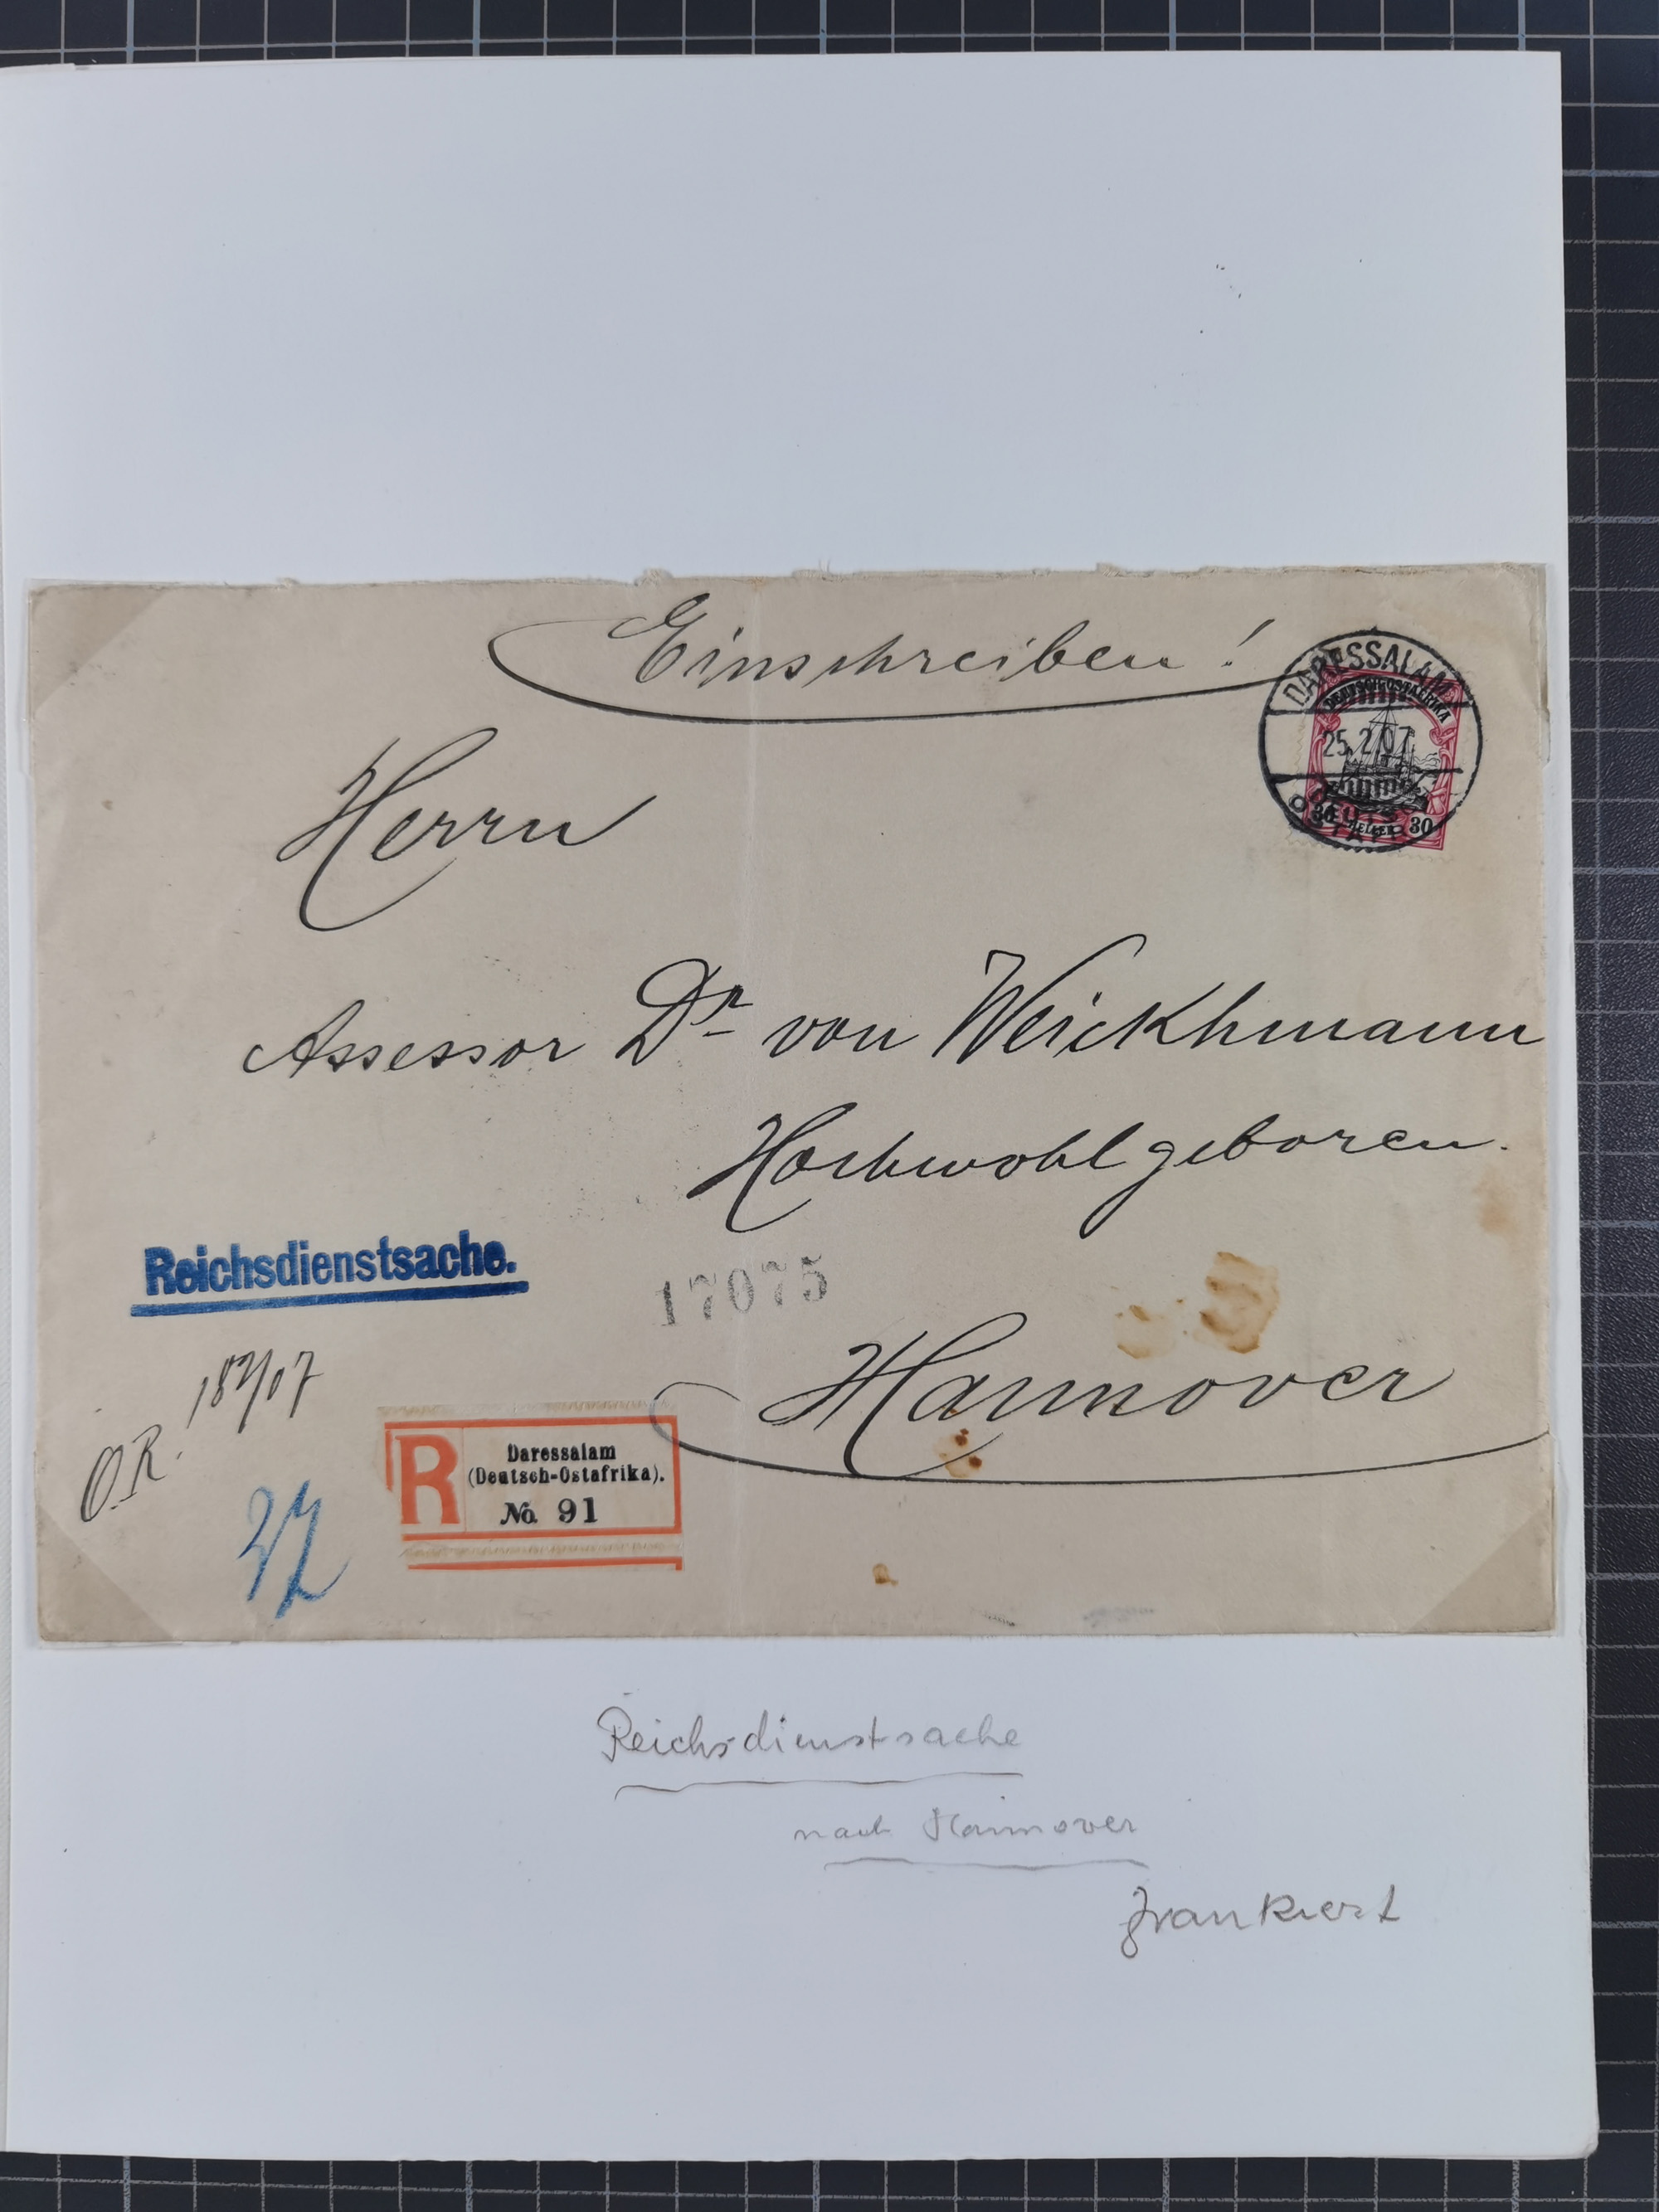 Einschreiben!
DARESSALAM
DEUTSCH-OSTAFRIKA
25.2.07.
30 HELLER 30
Herrn
Assessor Dr von Weickhmann
Hochwohlgeboren.
Reichsdienstsache.
17075
Hannover
O.R.
R
Daressalam
(Deutsch-Ostafrika).
No. 91
Reichsdienstsache
nach Hannover
frankiert